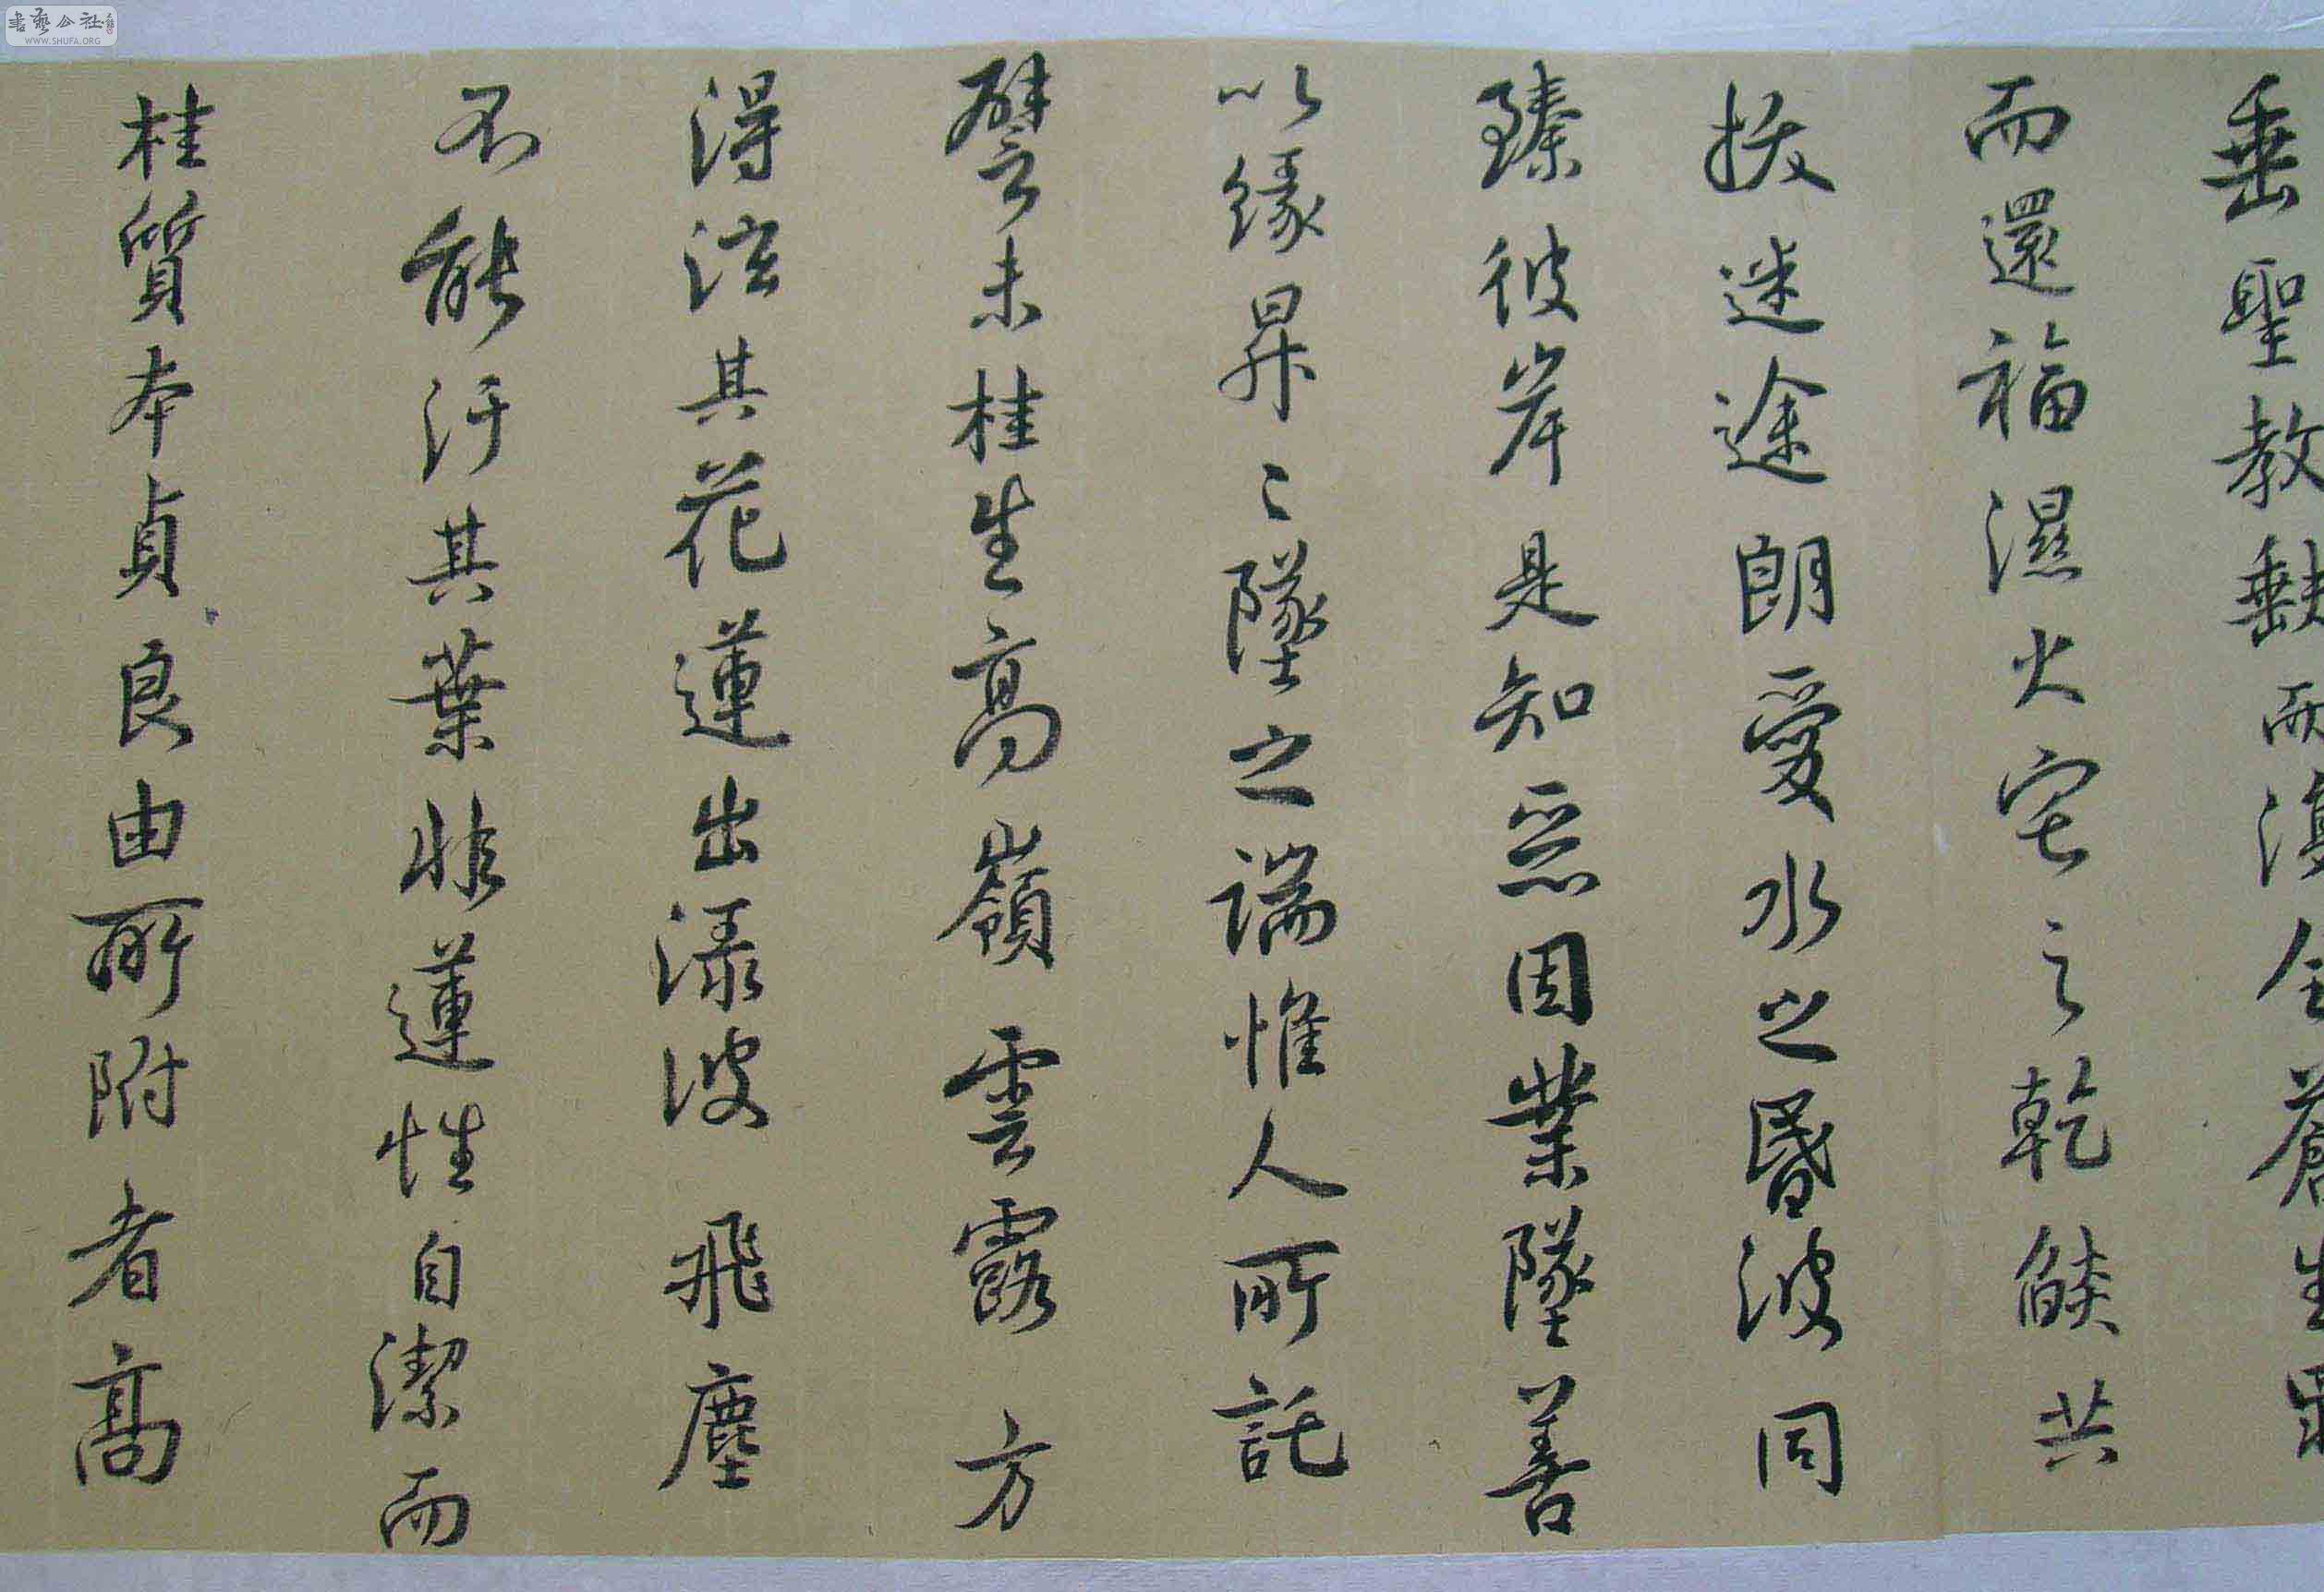 垂聖教缺而復全蒼生罪
而還福濕火宅之乾焰共
拔迷途朗愛水之昏波同
臻彼岸是知惡因業墜善
以緣昇〻墜之端惟人所託
譬未桂生高嶺雲露方
得泫其花蓮出淥波飛塵
不能汙其葉非蓮性自潔而
桂質本貞良由所附者高
書藝公社
WWW.SHUFA.ORG